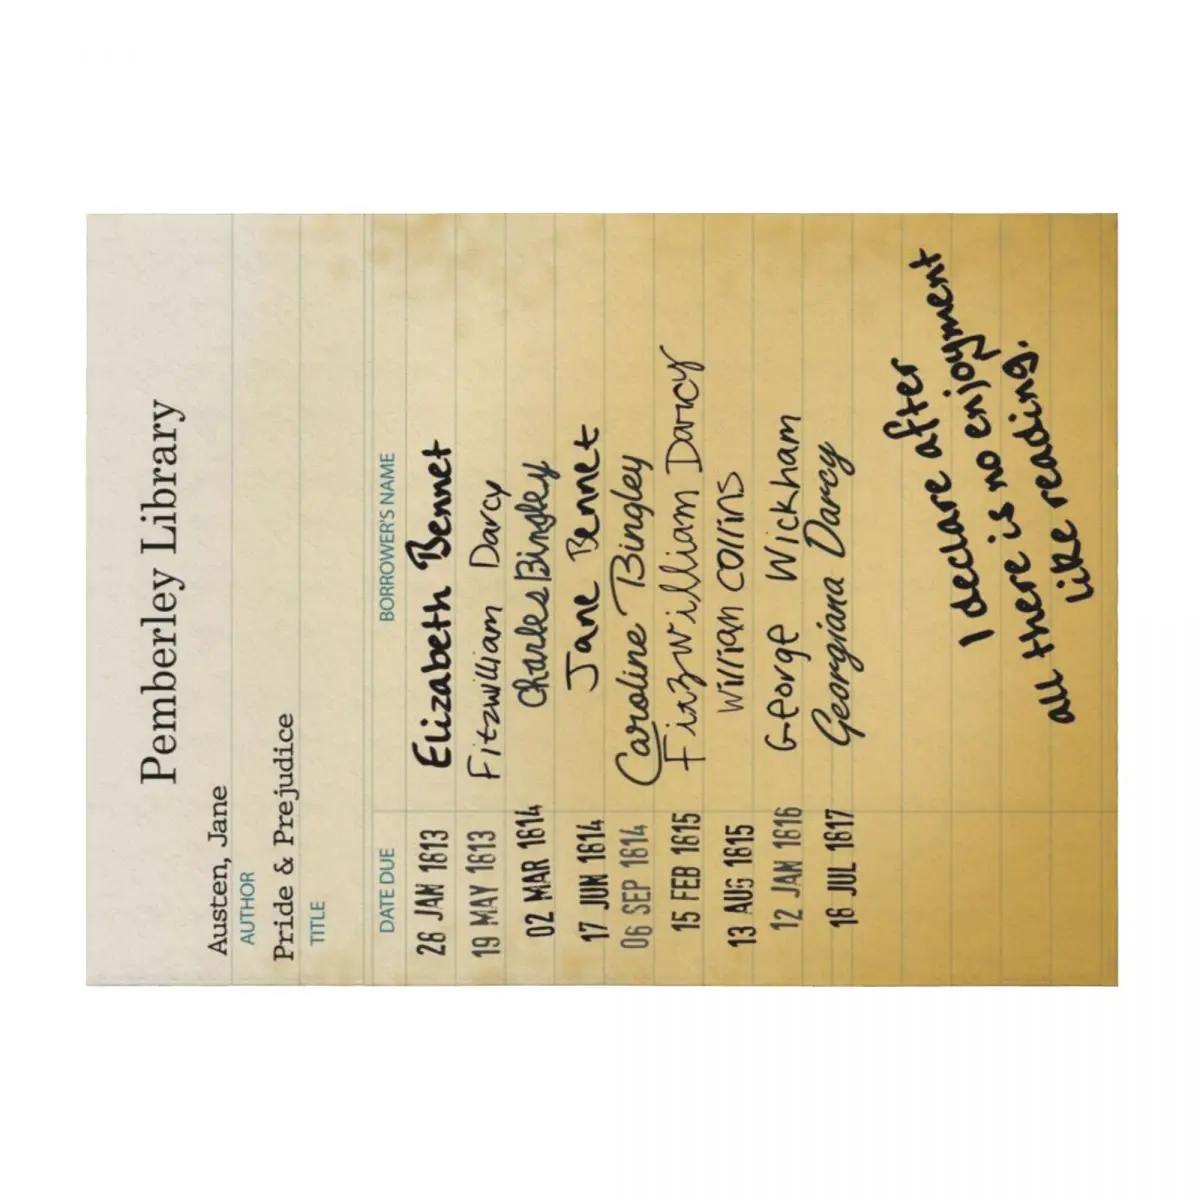 Pemberley Library
Austen, Jane
AUTHOR
Pride & Prejudice
TITLE
DATE DUE BORROWER'S NAME
28 JAN 1813 Elizabeth Bennet
19 MAY 1813 Fitzwilliam Darcy
02 MAR 1814 Charles Bingley
17 JUN 1814 Jane Bennet
06 SEP 1814 Caroline Bingley
15 FEB 1815 Fitzwilliam Darcy
13 AUG 1815 William Collins
12 JAN 1816 George Wickham
18 JUL 1817 Georgiana Darcy
I declare after
all there is no enjoyment
like reading.